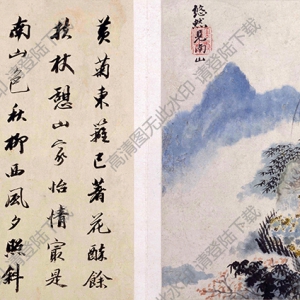 悠然見南山
黄菊東籬已著花酔餘
扶杖憩山家怡情冣是
南山色秋柳西風夕照斜
高清图无此水印 请登陆下载
高清图无此水印 请登陆下载